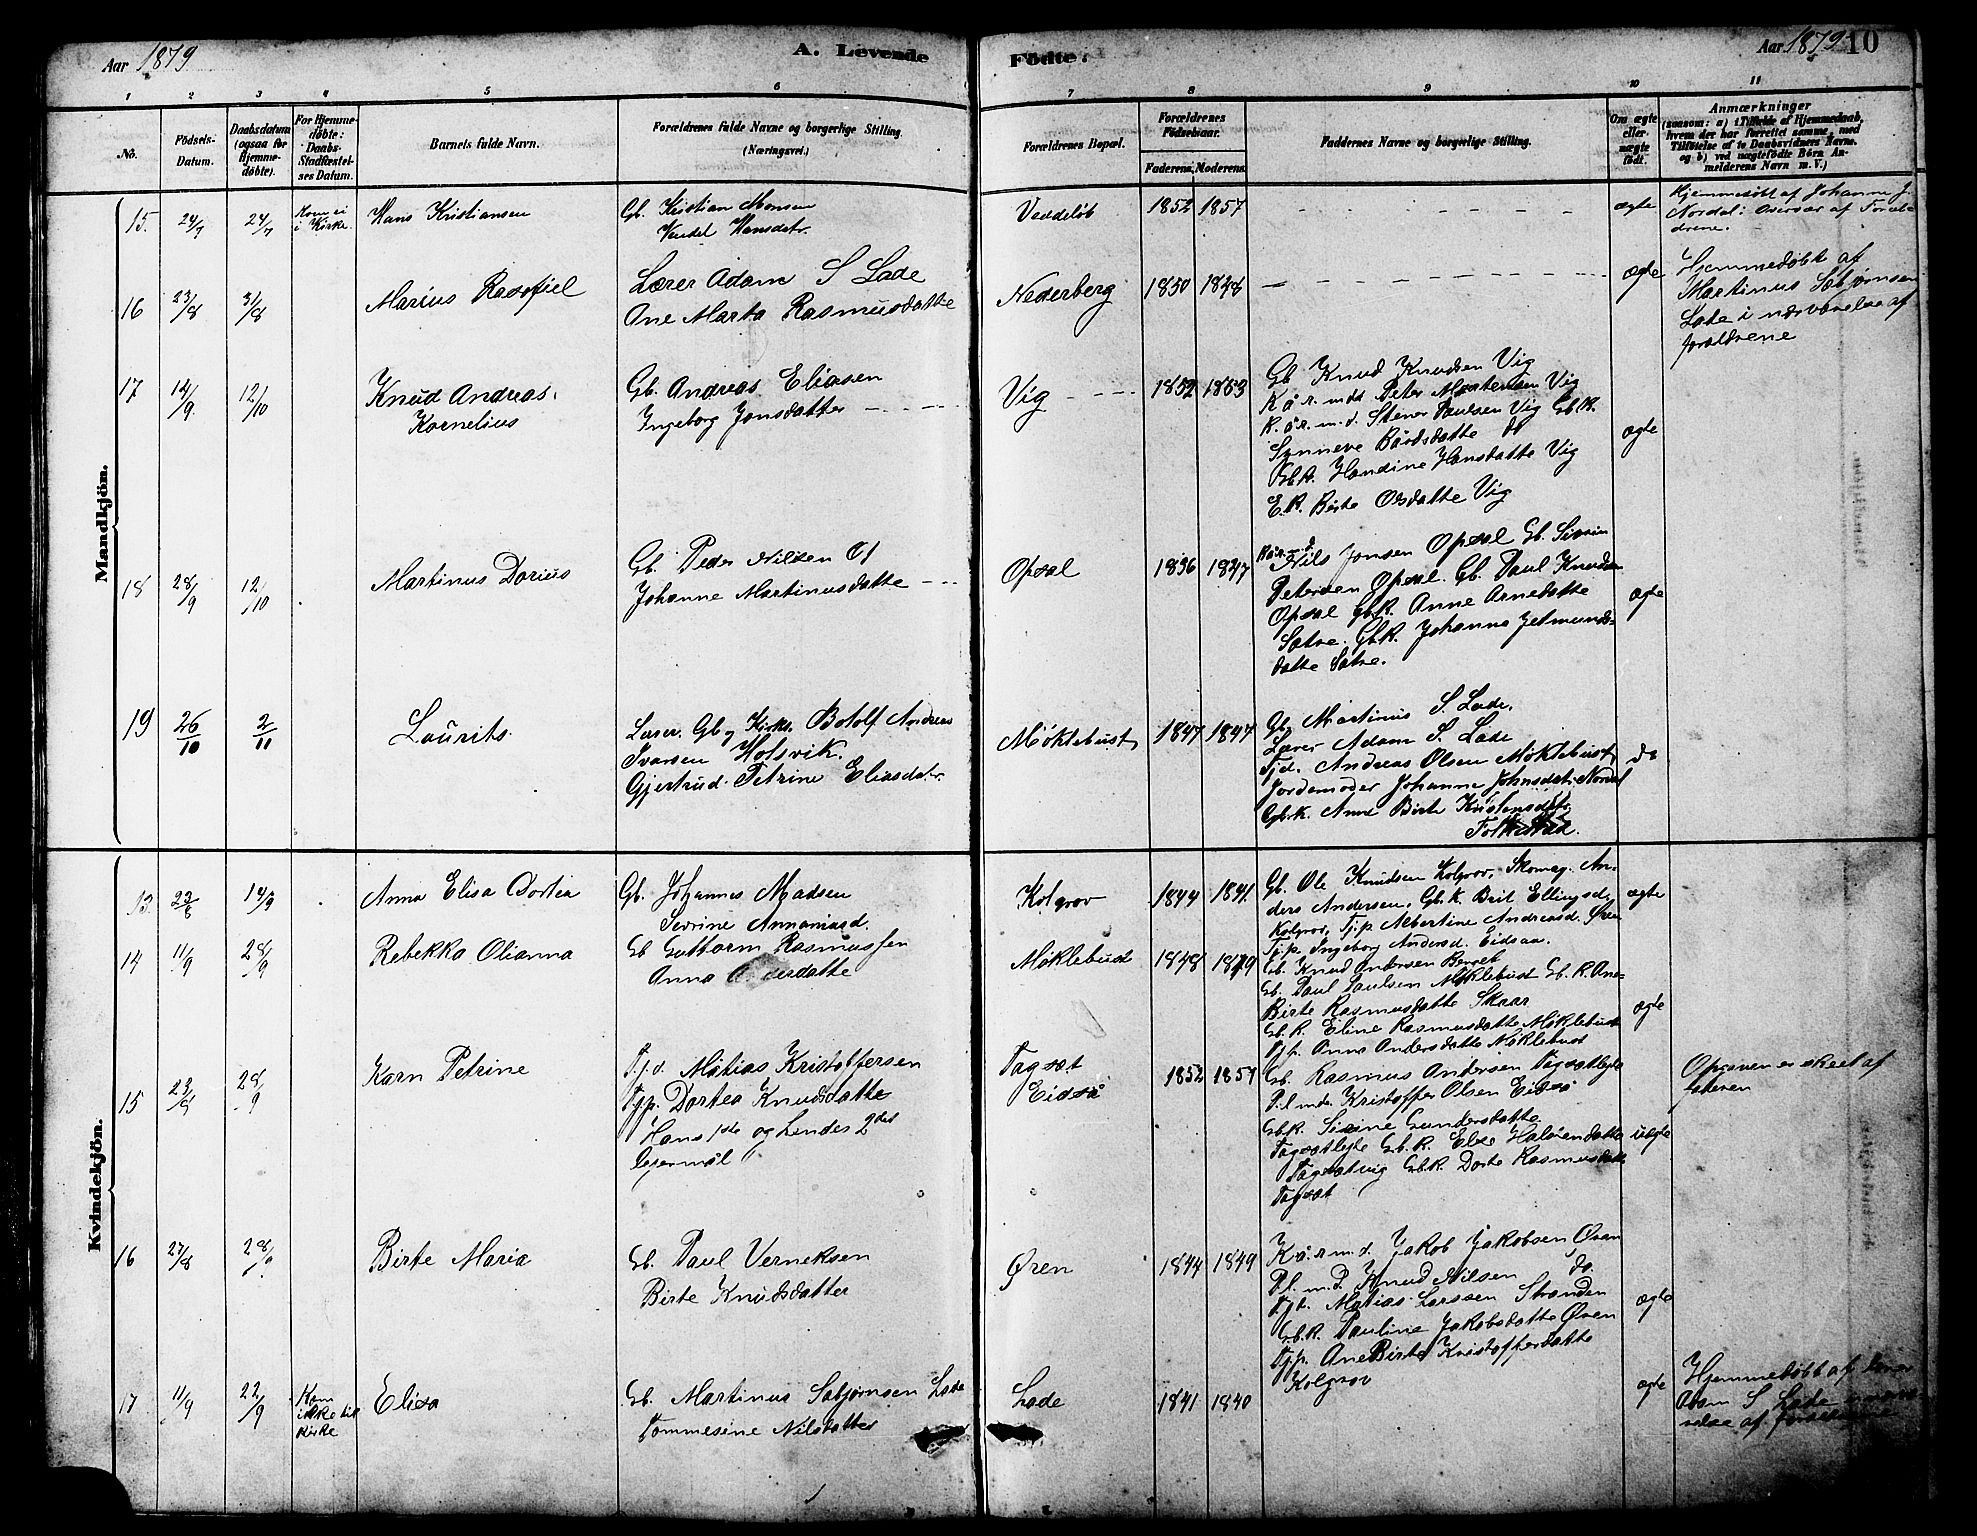 Aar 1879
A. Levende
Födte.
Aar 1879
10
1 2 3 4 5 6 7 8 9 10 11
No.
Födsels-
Datum.
Daabsdatum
(ogsaa for
Hjemme-
döbte).
For Hjemme-
döbte:
Daabs-
Stadfæstel-
ses Datum.
Barnets fulde Navn.
Forældrenes fulde Navne og borgerlige Stilling.
(Næringsvei.)
Forældrenes Bopæl.
Forældrenes
Födselsaar.
Faderens. Moderens.
Faddernes Navne og borgerlige Stilling.
Om ægte
eller
uægte
födt.
Anmærkninger
(saasom: a) i Tilfælde af Hjemmedaab,
hvem der har forrettet samme, med
Tilföielse af to Daabsvidners Navne.
og b) ved uægtefödte Börn An-
melderens Navn m. V.)
Mandkjön.
15. 24/7 24/7
Kom ei
i Kirke.
Hans Kristiansen
Gb. Kristian Monsen
Hansdatr.
1852 1857
ægte
Hjemmedøbt af Johanne J.
Nordal i Overvær af Foræl-
drene.
16 23/8 31/8
Marius
Lærer Adam S Lade
Ane Marta Rasmusdatte
Nederberg
1850 1848
ægte
Hjemmedøbt af
Martinus Sabjørnsen
Lade i nærværelse af
foreldrene
17 14/9. 12/10
Knud Andreas
Kornelius
Gb. Andreas Eliasen
Ingeborg Jonsdatter
Vig
1852 1853
Gb. Knud Knudsen Vig
K å r. mdt Peter Mortensen Vig
K. å r. m. d. Stener Paulsen Vig Gb. K.
Synneve Bårdsdatte do
Gb K. Handine Hansdatte Vig
E. K. Birte Olsdatte Vig
ægte
18 28/9 12/10
Martinus Dorius
Gb. Peder Nilsen
Johanne Martinusdatte
Opsal
1836 1837
Nils Jonsen Opsal Gb. Sivert
Petersen Opsal. Gb. Paul Knudsen
Opsal GbK. Anne Arnedatte
Sætre. GbK. Johanna Jetmunds-
datte Sætre.
ægte
19 26/10 2/11
Laurits
Lærer. Gb og Kirks. Botolf Andreas
Ivarsen Holsvik.
Gjertrud Petrine Eliasdatr.
Møklebust
1847 1847
Gb. Martinus S. Lade.
Lærer Adam S. Lade
Tjd. Andreas Olsen Møklebust
Jordemoder Johanne Johnsdatr. Nordal
Gbk. Anne Birte Kristensdatr
Folkestad.
do
Kvindekjön.
13. 23/8 14/9
Anna Elisa Dortea
Gb. Johannes Madsen
Sevrine Annamard.
Kolgrov
1844 1841.
Gb. Ole Knudsen Kolgrov, Skomag. An-
ders Andersen, Gb. K. Brit Ellingsd.
Kolgrov, Tjp. Albertine Andreasd. Øren
Tjp. Ingeborg Andersd. Eidsaa.
ægte
14 11/9 28/9
Rebekka Olianna
Gb Guttorm Rasmussen
Anna Andersdatte
Møklebust
1848 1849
Gb. Knud Andersen Berget
Gb. Paul Paulsen Møklebust Gb. K. Ane
Birte Rasmusdatte Skaar
Gb. K. Eline Rasmusdatte Møklebust
Tjp. Anna Andersdatte Møklebust
ægte
15 28/9
Karn Petrine
Tjd. Matias Kristoffersen
Tjp. Dortea Knudsdatte
Hans 1ste og hendes 2det
leiermål
Tagsæt
Eidså
1852 1857
Gb. Rasmus Andersen Tagsætløte
P.l mdr. Kristoffer Olsen Eidså
GbK. Sirine Gundersdatte
Gb. K. Else
Tagsætvig GbK. Dorte Rasmusdatte
Tagsæt
uægte
Opgaven er skeet af
faderen
16 27/8 28/9
Birte Maria
Gb. Paul Verneksen
Birte Knudsdatter
Øren
1844 1849
K å. r m. d. Jakob Jakobsen Øren
Pl. m. d. Knud Nilsen do.
Tjd. Matias Larssen Stranden
Gb. K. Pauline Jakobsdatte Øren
Tjp. Ane Birte Kristofferdatte
Kolgrov
ægte
17 11/9 22/9
Kom
ikke til
Kirke
Elisa
Gb. Martinus Sabjørnsen Lade
Tommesine Nilsdatter
Lade
1841 1840
ægte
Hjemmedøbt af lærer
Adam S Lade i nærvæ-
relse af foreldrene